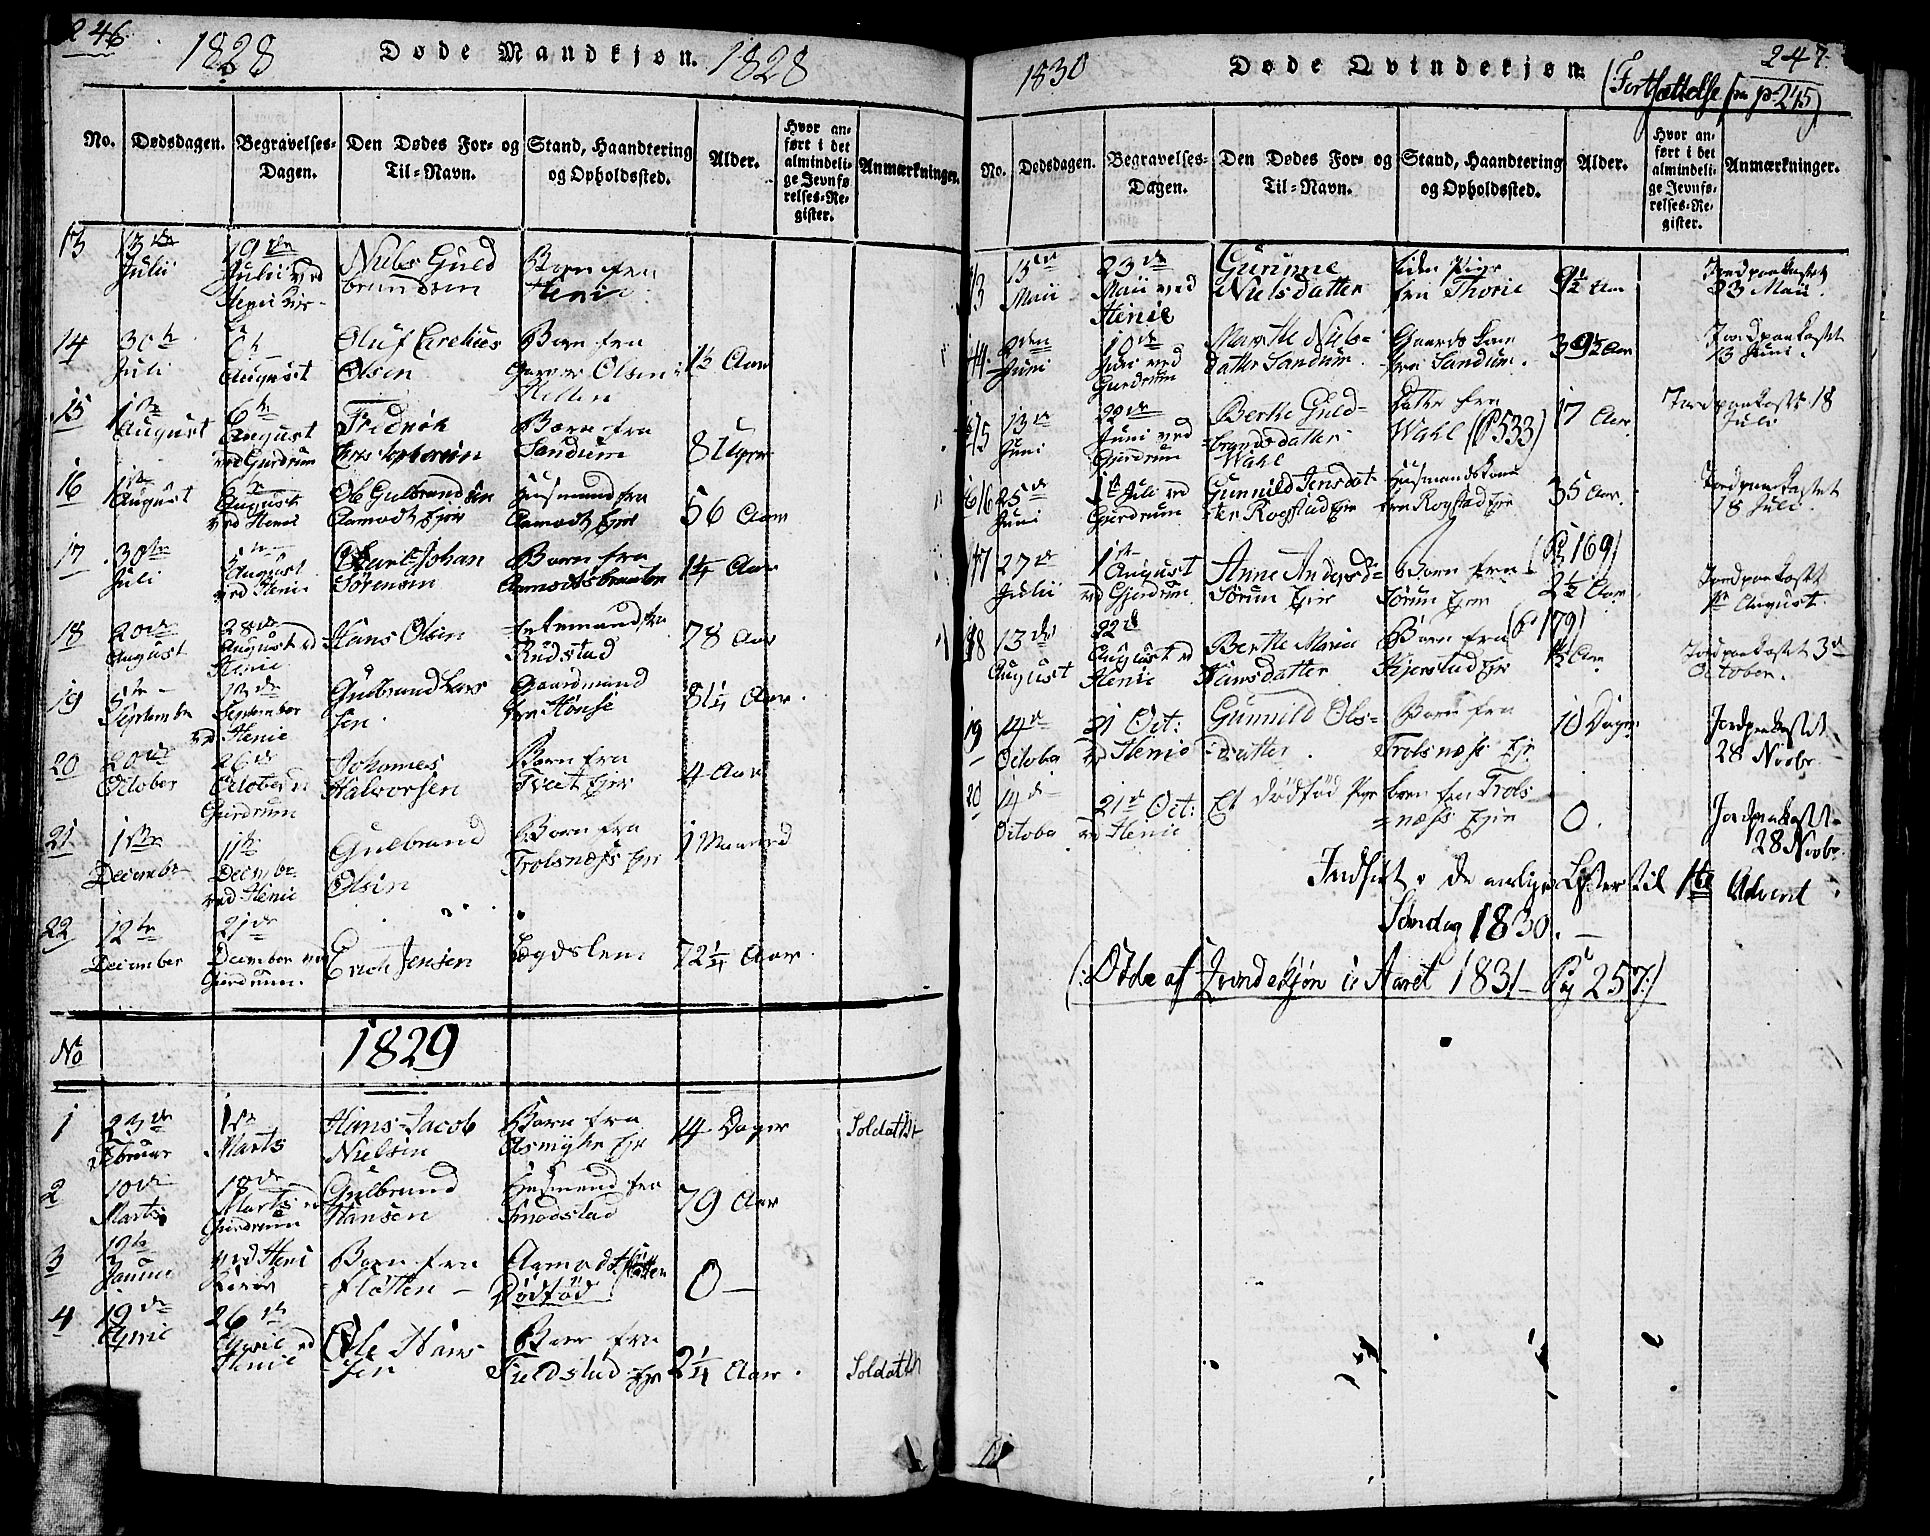 246.
1828 Døde Mandkjøn. 1828
No. Dødsdagen. Begravelses-Dagen. Den Dødes For- og Til-Navn. Stand, Haandtering og Opholdssted. Alder. Hvor anført i det almindelige Jevnførelses-Register. Anmærkninger.
13 13de Julii 19de Julii ved Henie Niels Guldbrandsen Barn fra Henie
14 30te Juli August Oluf Olsen Barn fra Olsen 1½ Aar
15 1ste August 6te August ved Gjerdrum Fredrik Christophersen Barn fra Sandum 8 Uger
16 1ste August August ved Henie Ole Gulbrandsen Aamodt Eje Huusmand fra Aamodt Eje 56 Aar
17 30te Juli 5te August ved Henie Carl Johan Sörensen Barn fra 1¼ Aar
18 20de August 28de August vd Henie Hans Olsen fra Rudstad 78 Aar
19 5te September 12de September vd Henie Gulbrand Larssen Gaardmand fra Hønse 81¼ Aar.
20 20de October 26de October vd Gjerdrum Johannes Halvorsen Barn fra Tveet Eje 4 Aar
21 1ste December 11te Decembr. ved Henie Gulbrand Olsen Barn fra Trolsnæss Eje 1 Maaned
22 12te December 21de December ved Gjerdrum. Erich Jensen Lægdslem 72¼ Aar.
No 1829
1 23de Februar 1ste Marts Hans Jacob Nielsen Barn fra Asmyhr Eje 14 Dager Soldat
2 10de Marts 18de Marts vd Gjerdrum Gulbrand Hansen Huusmand fra Smedstad 79 Aar
3 12te Januar ved Heni Kirke Barn fra Fløtten Aamodt Dødfød 0
4 19de April 26de April vd Henie Ole Hanssen Barn fra Fieldstad Eje 2¼ Aar. Soldat
247.
1830 Døde Qvindekjøn. (Fortsættelse fra p. 245)
No. Dødsdagen. Begravelses-Dagen. Den Dødes For- og Til-Navn. Stand, Haandtering og Opholdssted. Alder. Hvor anført i det almindelige Jevnførelses-Register. Anmærkninger.
13 13de Maii 23de Maii ved Henie Gunine Nielsdatter liden Pige fra Thorie 9½ Aar Jordpaakastet 23 Maii.
14 Juni 10de Juni ved Gjerdrum Marthe Nielsdatter Sandum. Gaards Kone fra Sandum. 39½ Aar Jordpaakastet 13 Juni.
15 13de Juni 20de Juni ved Gjerdrum Berthe Guldbrandsdatter Wahl Datter fra Wahl (P 533) 17 Aar Jordpaakastet 18 Juli
16 25de Juni 1ste Juli vd Gjerdrum Gunnild Jensdatter Rogstad Eje Huusmandskone fra Rogstad Eje 35 Aar. Jordpaakastet 18 Juli.
17 27de Julii 1ste August vd Gjerdrum Anne Andersd= Sörum Eje Barn fra Sörum Eje (P. 169) 2½ Aar Jordpaakastet August.
18 13de August 22de August vd Henie Berthe Maria Hansdatter Barn fra Kjerstad Eje (P 179) Aar Jordpaakastet 3de October.
19 14de October 21 Oct: vd Henie Gunnild Olsdatter. Barn fra Trolsnæss Eje 10 Dage Jordpaakastet 28 Novbr
20 14de October 21de Oct: vd Henie Et dødfød Pige barn fra Trolsnæss Eje 0. Jordpaakastet 28 Novbr.
Indført i de aarlige Lister til 1ste Advent
Søndag 1830.
(: Döde af Qvindekjøn i Aaret 1831 – Pag 257:)